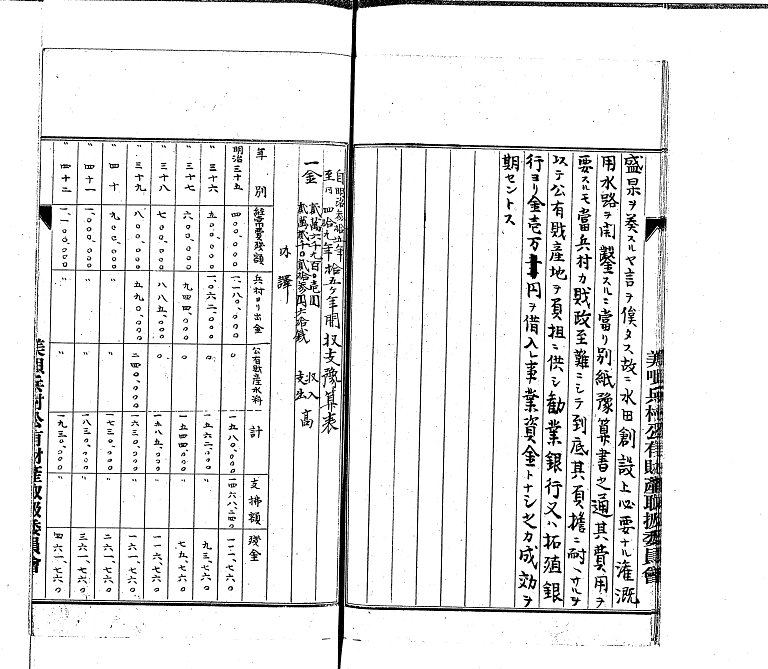 盛昌ヲ奏スルヤ言ヲ俟タス故ニ水田創設上必要ナル灌漑
用水路ヲ開鑿スルニ當リ別紙豫算書之通其費用ヲ
要スルモ當兵村カ財政至難ニシテ到底其負擔ニ耐ヘサルヲ
以テ公有財産地ヲ負担ニ供シ勧業銀行又ハ拓殖銀
行ヨリ金壱万円ヲ借入レ事業資金トナシ之カ成効ヲ
期セントス
美唄兵村公有財産取扱委員會
自明治参拾五年
至〃四拾九年
拾五ヶ年間収支豫算表
一金
貳萬六千九百〇壱圓 収入
貳萬貳千〇貳拾参円六拾銭 支出
高
内譯
年別 経常費残額 兵村ヨリ出金 公有財産水料 計 支拂額 残金
明治三十五 四〇〇,〇〇〇 一,一八〇,〇〇〇 〇 一,九八〇,〇〇〇 一,四六八,二四〇 一一一,七六〇
〃 三十六 五〇〇,〇〇〇 一,〇六二,〇〇〇 〇 一,五六二,〇〇〇 〃 九三,七六〇
〃 三十七 六〇〇,〇〇〇 九四四,〇〇〇 〇 一,五四四,〇〇〇 〃 七五,七六〇
〃 三十八 七〇〇,〇〇〇 八八五,〇〇〇 〇 一,五八五,〇〇〇 〃 一一六,七六〇
〃 三十九 八〇〇,〇〇〇 五九〇,〇〇〇 二四〇,〇〇〇 一,六三〇,〇〇〇 〃 一六一,七六〇
〃 四十 九〇〇,〇〇〇 〃 〃 一,七三〇,〇〇〇 〃 二六一,七六〇
〃 四十一 一,〇〇〇,〇〇〇 〃 〃 一,八三〇,〇〇〇 〃 三六一,七六〇
〃 四十二 一,一〇〇,〇〇〇 〃 〃 一,九三〇,〇〇〇 〃 四六一,七六〇
美唄兵村公有財産取扱委員會